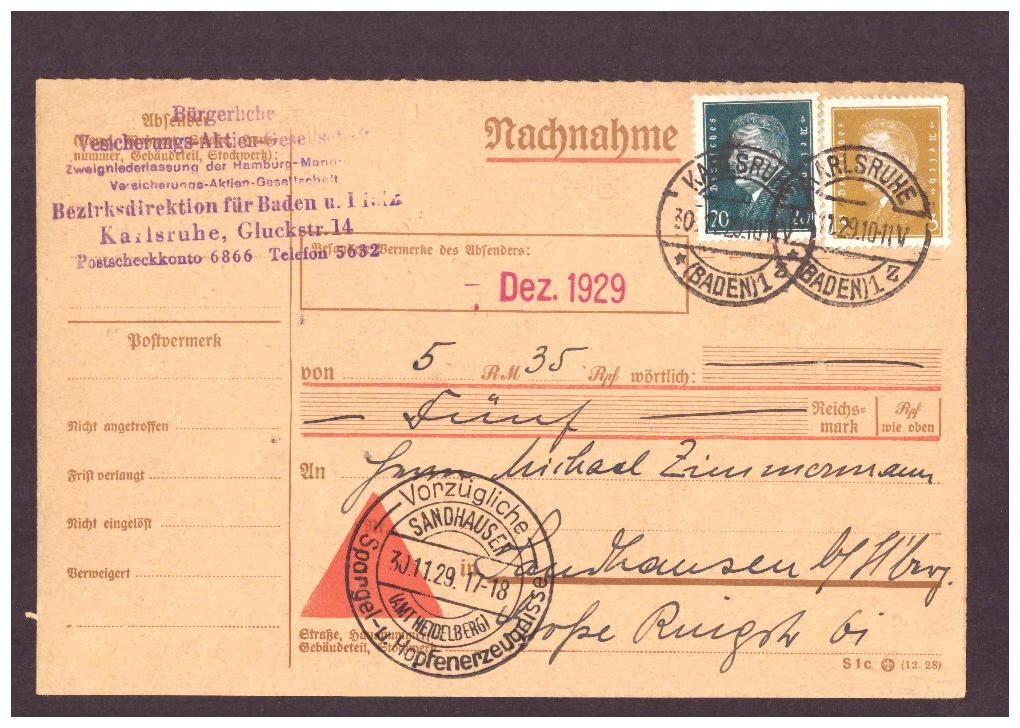 Bürgerliche
Absender
Versicherungs-Aktien-Gesellschaft
nummer, Gebäudeteil, Stockwerk):
Zweigniederlassung der Hamburg-
Versicherungs-Aktien-Gesellschaft
Bezirksdirektion für Baden u.
Karlsruhe, Gluckstr. 14
Postscheckkonto 6866 Telefon 5632
Nachnahme
Deutsches Reich
20 20
Deutsches Reich
3
KARLSRUHE
30.11.29.10-11V
* (BADEN) 1 z
KARLSRUHE
11.29.10-11V
* (BADEN) 1 z
Besondere Vermerke des Absenders:
- Dez. 1929
Postvermerk
Nicht angetroffen
Frist verlangt
Nicht eingelöst
Verweigert
von 5 RM 35 Rpf wörtlich:
Fünf Reichs- Rpf
mark wie oben
An Herrn Michael Zimmermann
in Sandhausen b/Hbrg.
Große Ringstr 61
Vorzügliche
SANDHAUSEN
30.11.29. 17-18
(AMT HEIDELBERG)
Spargel- u. Hopfenerzeugnisse
Straße, Hausnummer,
Gebäudeteil, Stockwerk
S1c (12. 28)